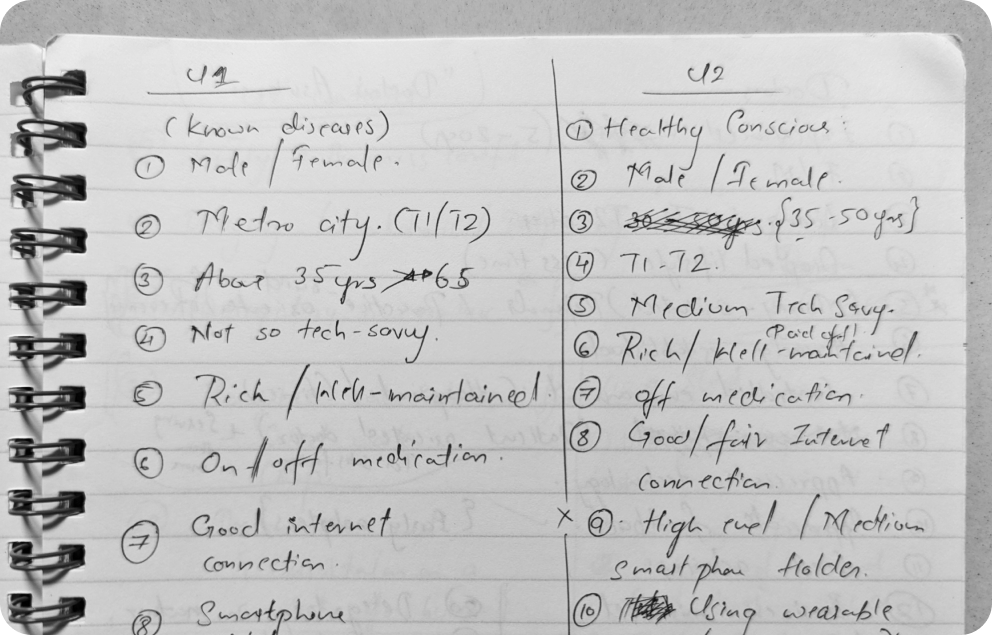 U1
(Known diseases)
① Male / Female.
② Metro city. (T1/T2)
③ Above 35 yrs 65
④ Not so tech-savvy.
⑤ Rich / Well-maintained.
⑥ On / off medication.
⑦ Good internet
connection.
⑧ Smartphone
U2
① Healthy Conscious.
② Male / Female.
③ {35-50 yrs}
④ T1-T2.
⑤ Medium Tech Savy.
⑥ Rich / Well-maintained.
⑦ off medication.
⑧ Good/fair Internet
connection.
x ⑨. High end / Medium
smart phone Holder.
⑩ Using wearable